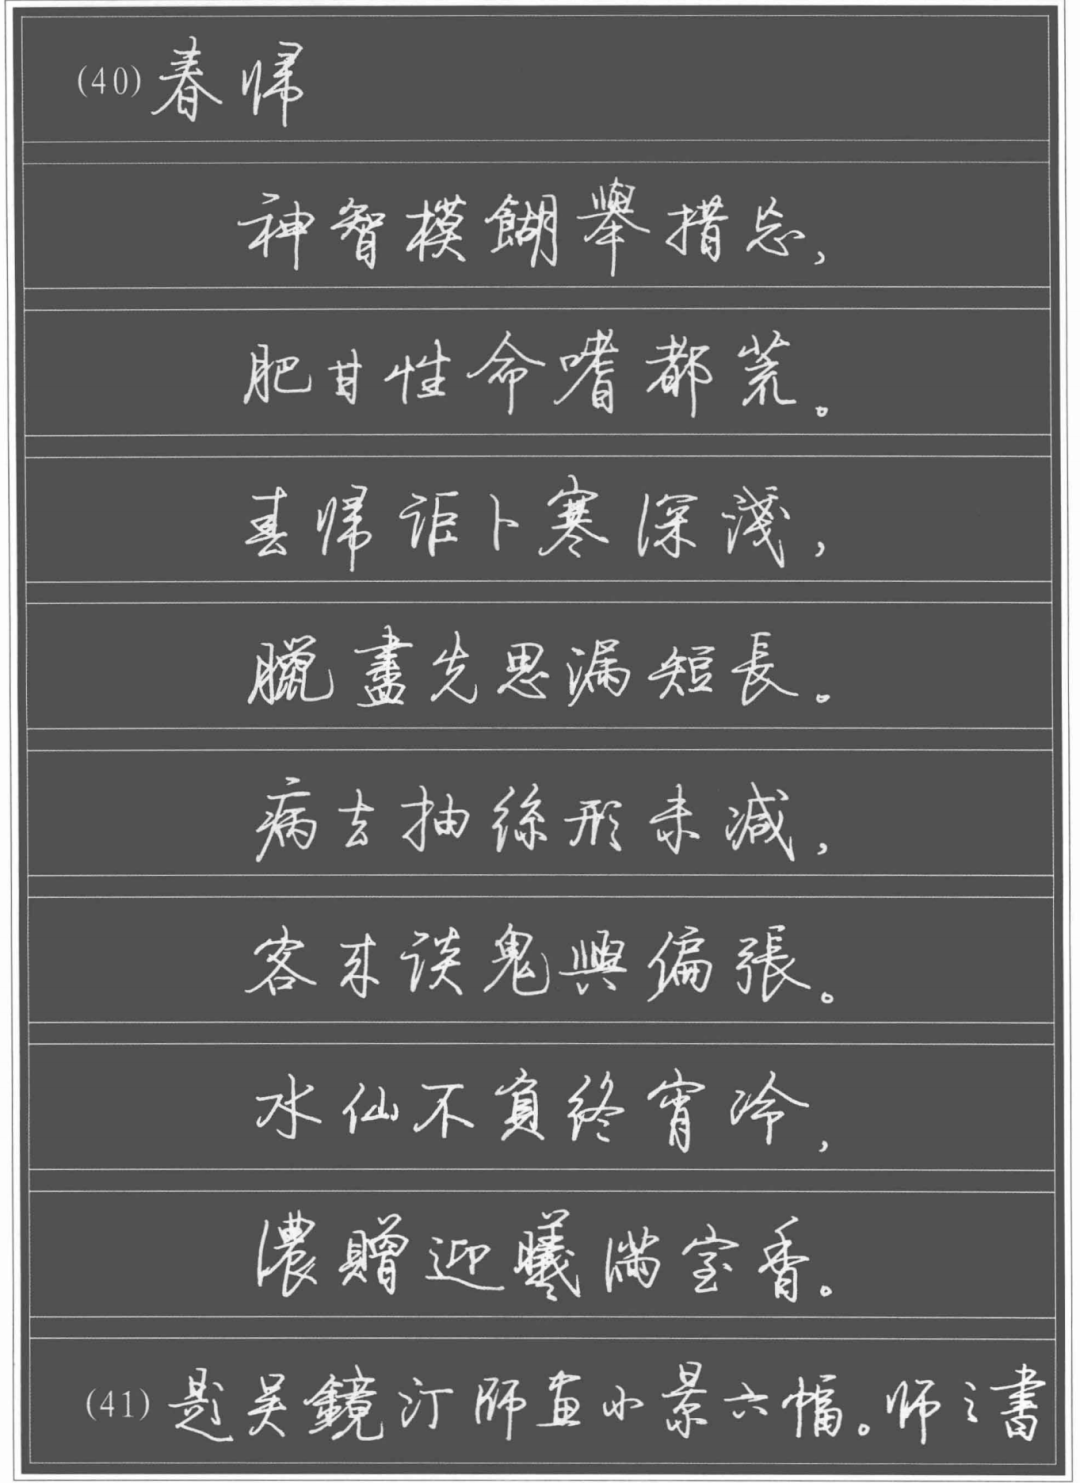 (40)春帰
神智模餬舉措忘，
肥甘性命嗜都荒。
春帰詎卜寒深淺，
臘盡先思漏短長。
病去抽絲形未減，
客来談鬼興偏張。
水仙不負終宵冷，
濃贈迎曦滿室香。
(41)題吴鏡汀師画小景六幅。师之書